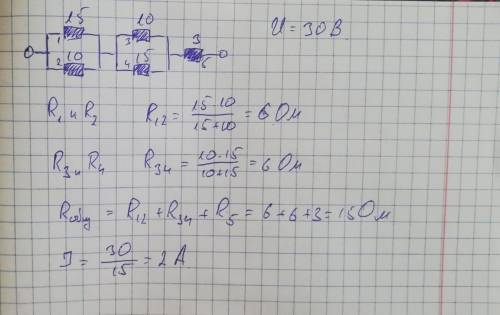 15 10 U = 30В
1 3 3
2 10 4 15 5
R₁ и R₂ R₁₂ = 15·10 / 15+10 = 6 Ом
R₃ и R₄ R₃₄ = 10·15 / 10+15 = 6 Ом
Rобщ = R₁₂ + R₃₄ + R₅ = 6+6+3 = 15 Ом
I = 30 / 15 = 2 А